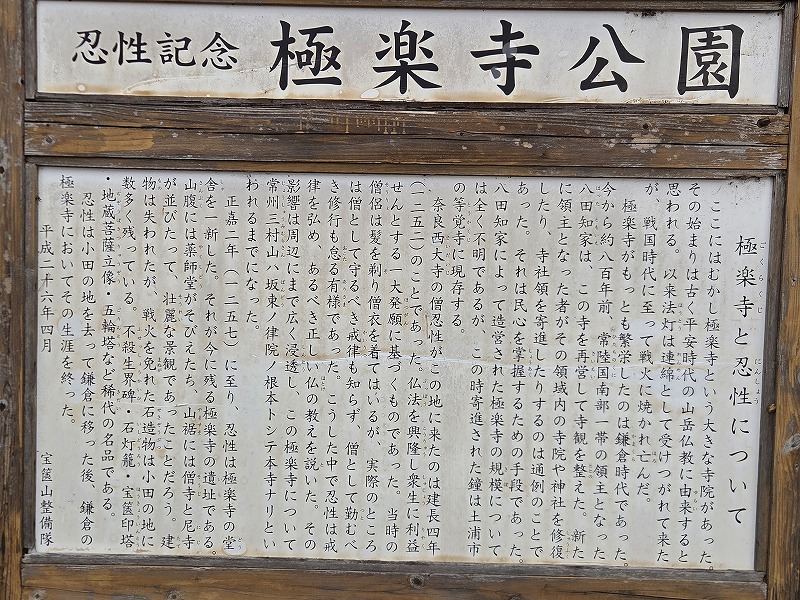 忍性記念 極楽寺公園
極楽寺と忍性について
ごくらくじ にんしょう
ここにはむかし極楽寺という大きな寺院があった。
その始まりは古く平安時代の山岳仏教に由来すると
思われる。以来法灯は連綿として受けつがれて来た
が、戦国時代に至って戦火に焼かれ亡んだ。
極楽寺がもっとも繁栄したのは鎌倉時代であった。
今から約八百年前、常陸国南部一帯の領主となった
八田知家は、この寺を再営して寺観を整えた。新た
に領主となった者がその領域内の寺院や神社を修復
したり、寺社領を寄進したりするのは通例のことで
あった。それは民心を掌握するための手段であった。
八田知家によって造営された極楽寺の規模について
は全く不明であるが、この時寄進された鐘は土浦市
の等覚寺に現存する。
奈良西大寺の僧忍性がこの地に来たのは建長四年
（一二五二）のことであった。仏法を興隆し衆生に利益
せんとする一大発願に基づくものであった。当時の
僧侶は髪を剃り僧衣を着てはいるが、実際のところ
は僧として守るべき戒律も知らず、僧として勤むべ
き修行も怠る有様であった。こうした中で忍性は戒
律を弘め、あるべき正しい仏の教えを説いた。その
影響は周辺にまで広く浸透し、この極楽寺について
常州三村山ハ坂東ノ律院ノ根本トシテ本寺ナリとい
われるまでになった。
正嘉二年（一二五七）に至り、忍性は極楽寺の堂
舎を一新した。それが今に残る極楽寺の遺址である。
山腹には薬師堂がそびえたち、山裾には僧寺と尼寺
が並びたって、壮麗な景観であったことだろう。建
物は失われたが、戦火を免れた石造物は小田の地に
数多く残っている。不殺生界碑・石灯籠・宝篋印塔
・地蔵菩薩立像・五輪塔など稀代の名品である。
忍性は小田の地を去って鎌倉に移った後、鎌倉の
極楽寺においてその生涯を終った。
平成二十六年四月 宝篋山整備隊